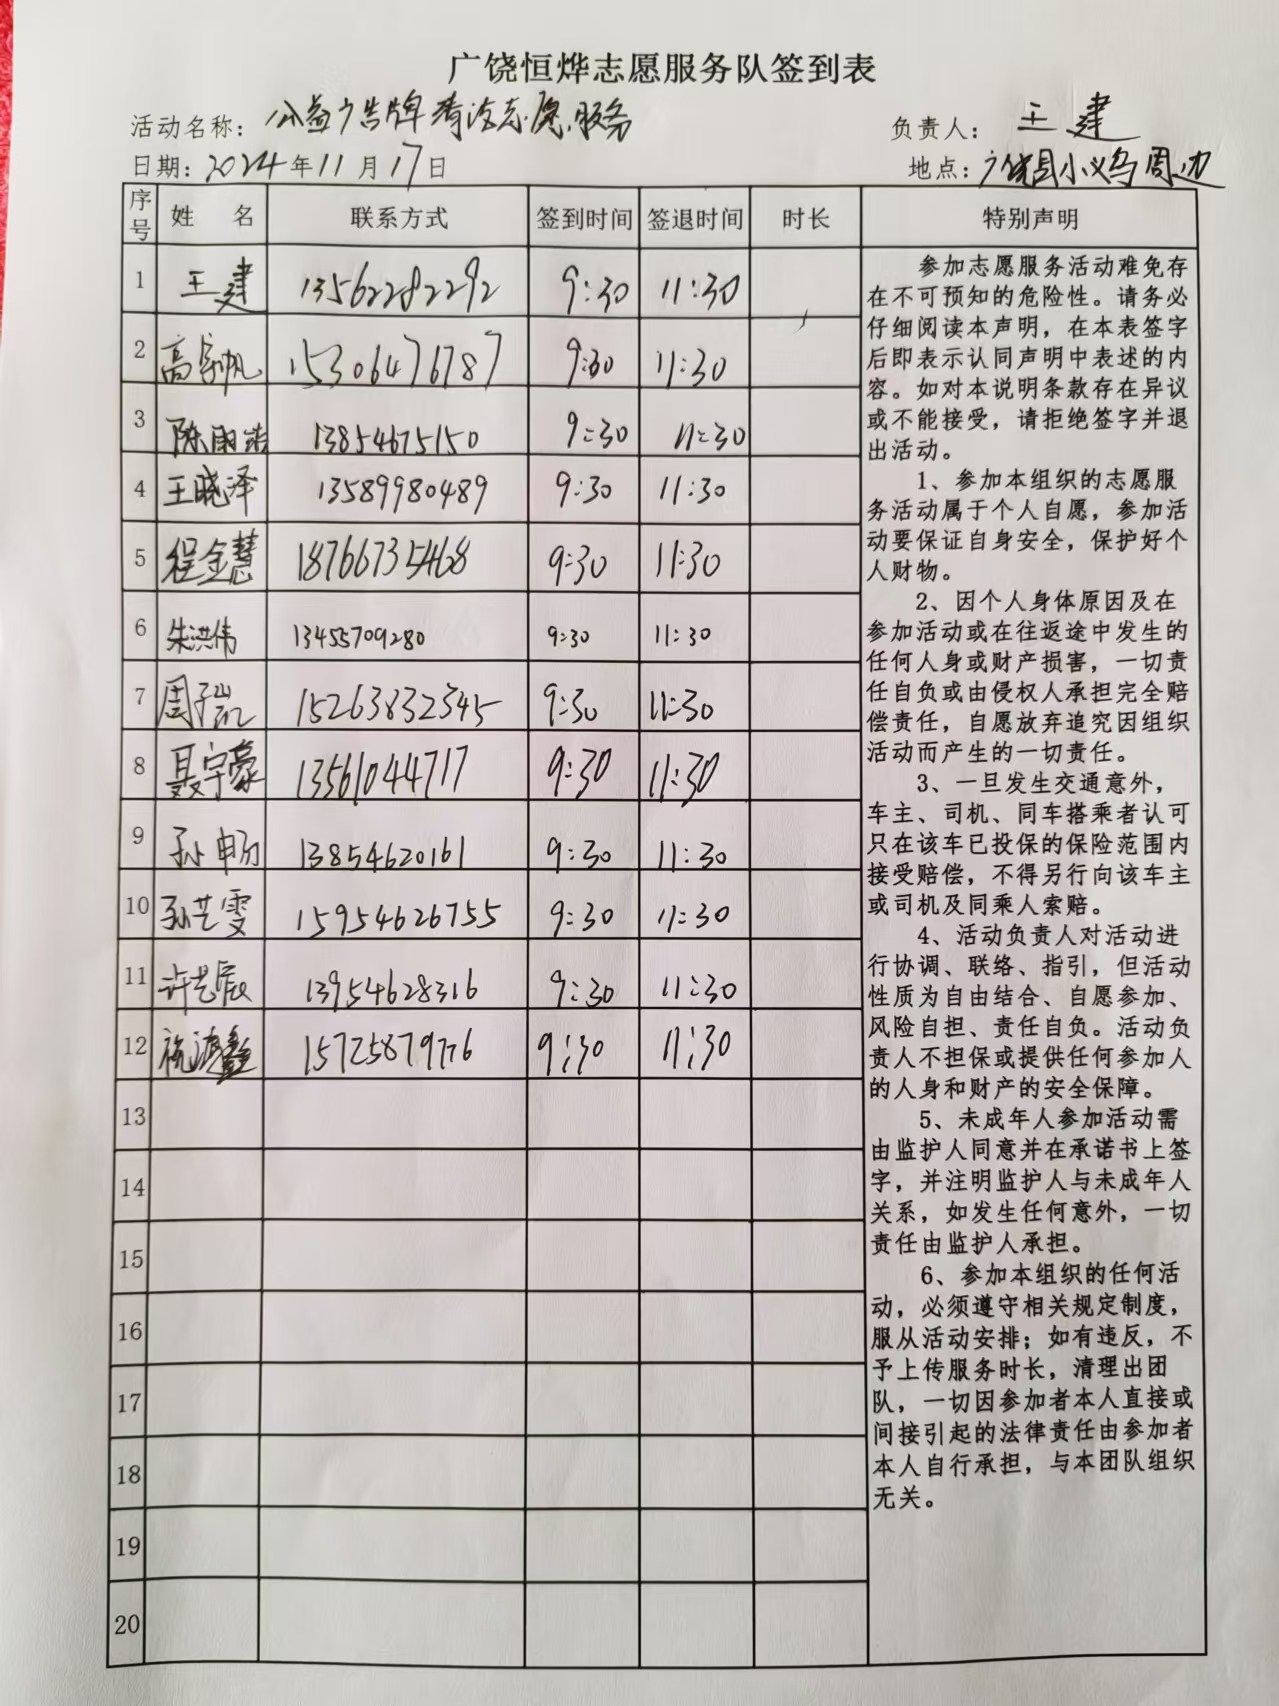 广饶恒烨志愿服务队签到表
活动名称：公益广告牌清洁志愿服务 负责人：王建
日期：2024年11月17日 地点：广饶县小义乌周边
序号 姓名 联系方式 签到时间 签退时间 时长 特别声明
1 王建 13562282292 9:30 11:30
2 高家帆 15306476787 9:30 11:30
3 陈雨浩 13854675150 9:30 11:30
4 王晓泽 13589980489 9:30 11:30
5 程金慧 18766735468 9:30 11:30
6 朱洪伟 13455709280 9:30 11:30
7 周子凯 15263832345 9:30 11:30
8 聂宇豪 13561044717 9:30 11:30
9 孙畅 13854620161 9:30 11:30
10 孙艺雯 15954626755 9:30 11:30
11 许艺宸 13954628316 9:30 11:30
12 鑫 15725879776 9:30 11:30
13
14
15
16
17
18
19
20
参加志愿服务活动难免存
在不可预知的危险性。请务必
仔细阅读本声明，在本表签字
后即表示认同声明中表述的内
容。如对本说明条款存在异议
或不能接受，请拒绝签字并退
出活动。
1、参加本组织的志愿服
务活动属于个人自愿，参加活
动要保证自身安全，保护好个
人财物。
2、因个人身体原因及在
参加活动或在往返途中发生的
任何人身或财产损害，一切责
任自负或由侵权人承担完全赔
偿责任，自愿放弃追究因组织
活动而产生的一切责任。
3、一旦发生交通意外，
车主、司机、同车搭乘者认可
只在该车已投保的保险范围内
接受赔偿，不得另行向该车主
或司机及同乘人索赔。
4、活动负责人对活动进
行协调、联络、指引，但活动
性质为自由结合、自愿参加、
风险自担、责任自负。活动负
责人不担保或提供任何参加人
的人身和财产的安全保障。
5、未成年人参加活动需
由监护人同意并在承诺书上签
字，并注明监护人与未成年人
关系，如发生任何意外，一切
责任由监护人承担。
6、参加本组织的任何活
动，必须遵守相关规定制度，
服从活动安排；如有违反，不
予上传服务时长，清理出团
队，一切因参加者本人直接或
间接引起的法律责任由参加者
本人自行承担，与本团队组织
无关。